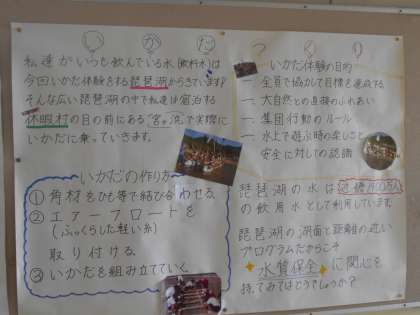 いかだ
つくり
私達がいつも飲んでいる水(飲料水)は
今回いかだ体験をする琵琶湖からきています?
そんな広い琵琶湖の中で私達は宿泊する
休暇村の目の前にある"宮ヶ浜"で実際に
いかだに乗っていきます。
いかだの作り方
① 角材をひも等で結び合わせる
② エアーフロートを
(ふっくらした軽い糸)
取り付ける
③ いかだを組み立てていく
いかだ体験の目的
一 全員で協力して目標を達成する
一 大自然との直接のふれあい
一 集団行動のルール
一 水上で遊ぶ時の楽しさと
安全に対する認識
琵琶湖の水は
の飲用水として利用しています
琵琶湖の湖面と距離の近い
プログラムだからこそ
水質保全に関心を
持ってみてはどうでしょうか?